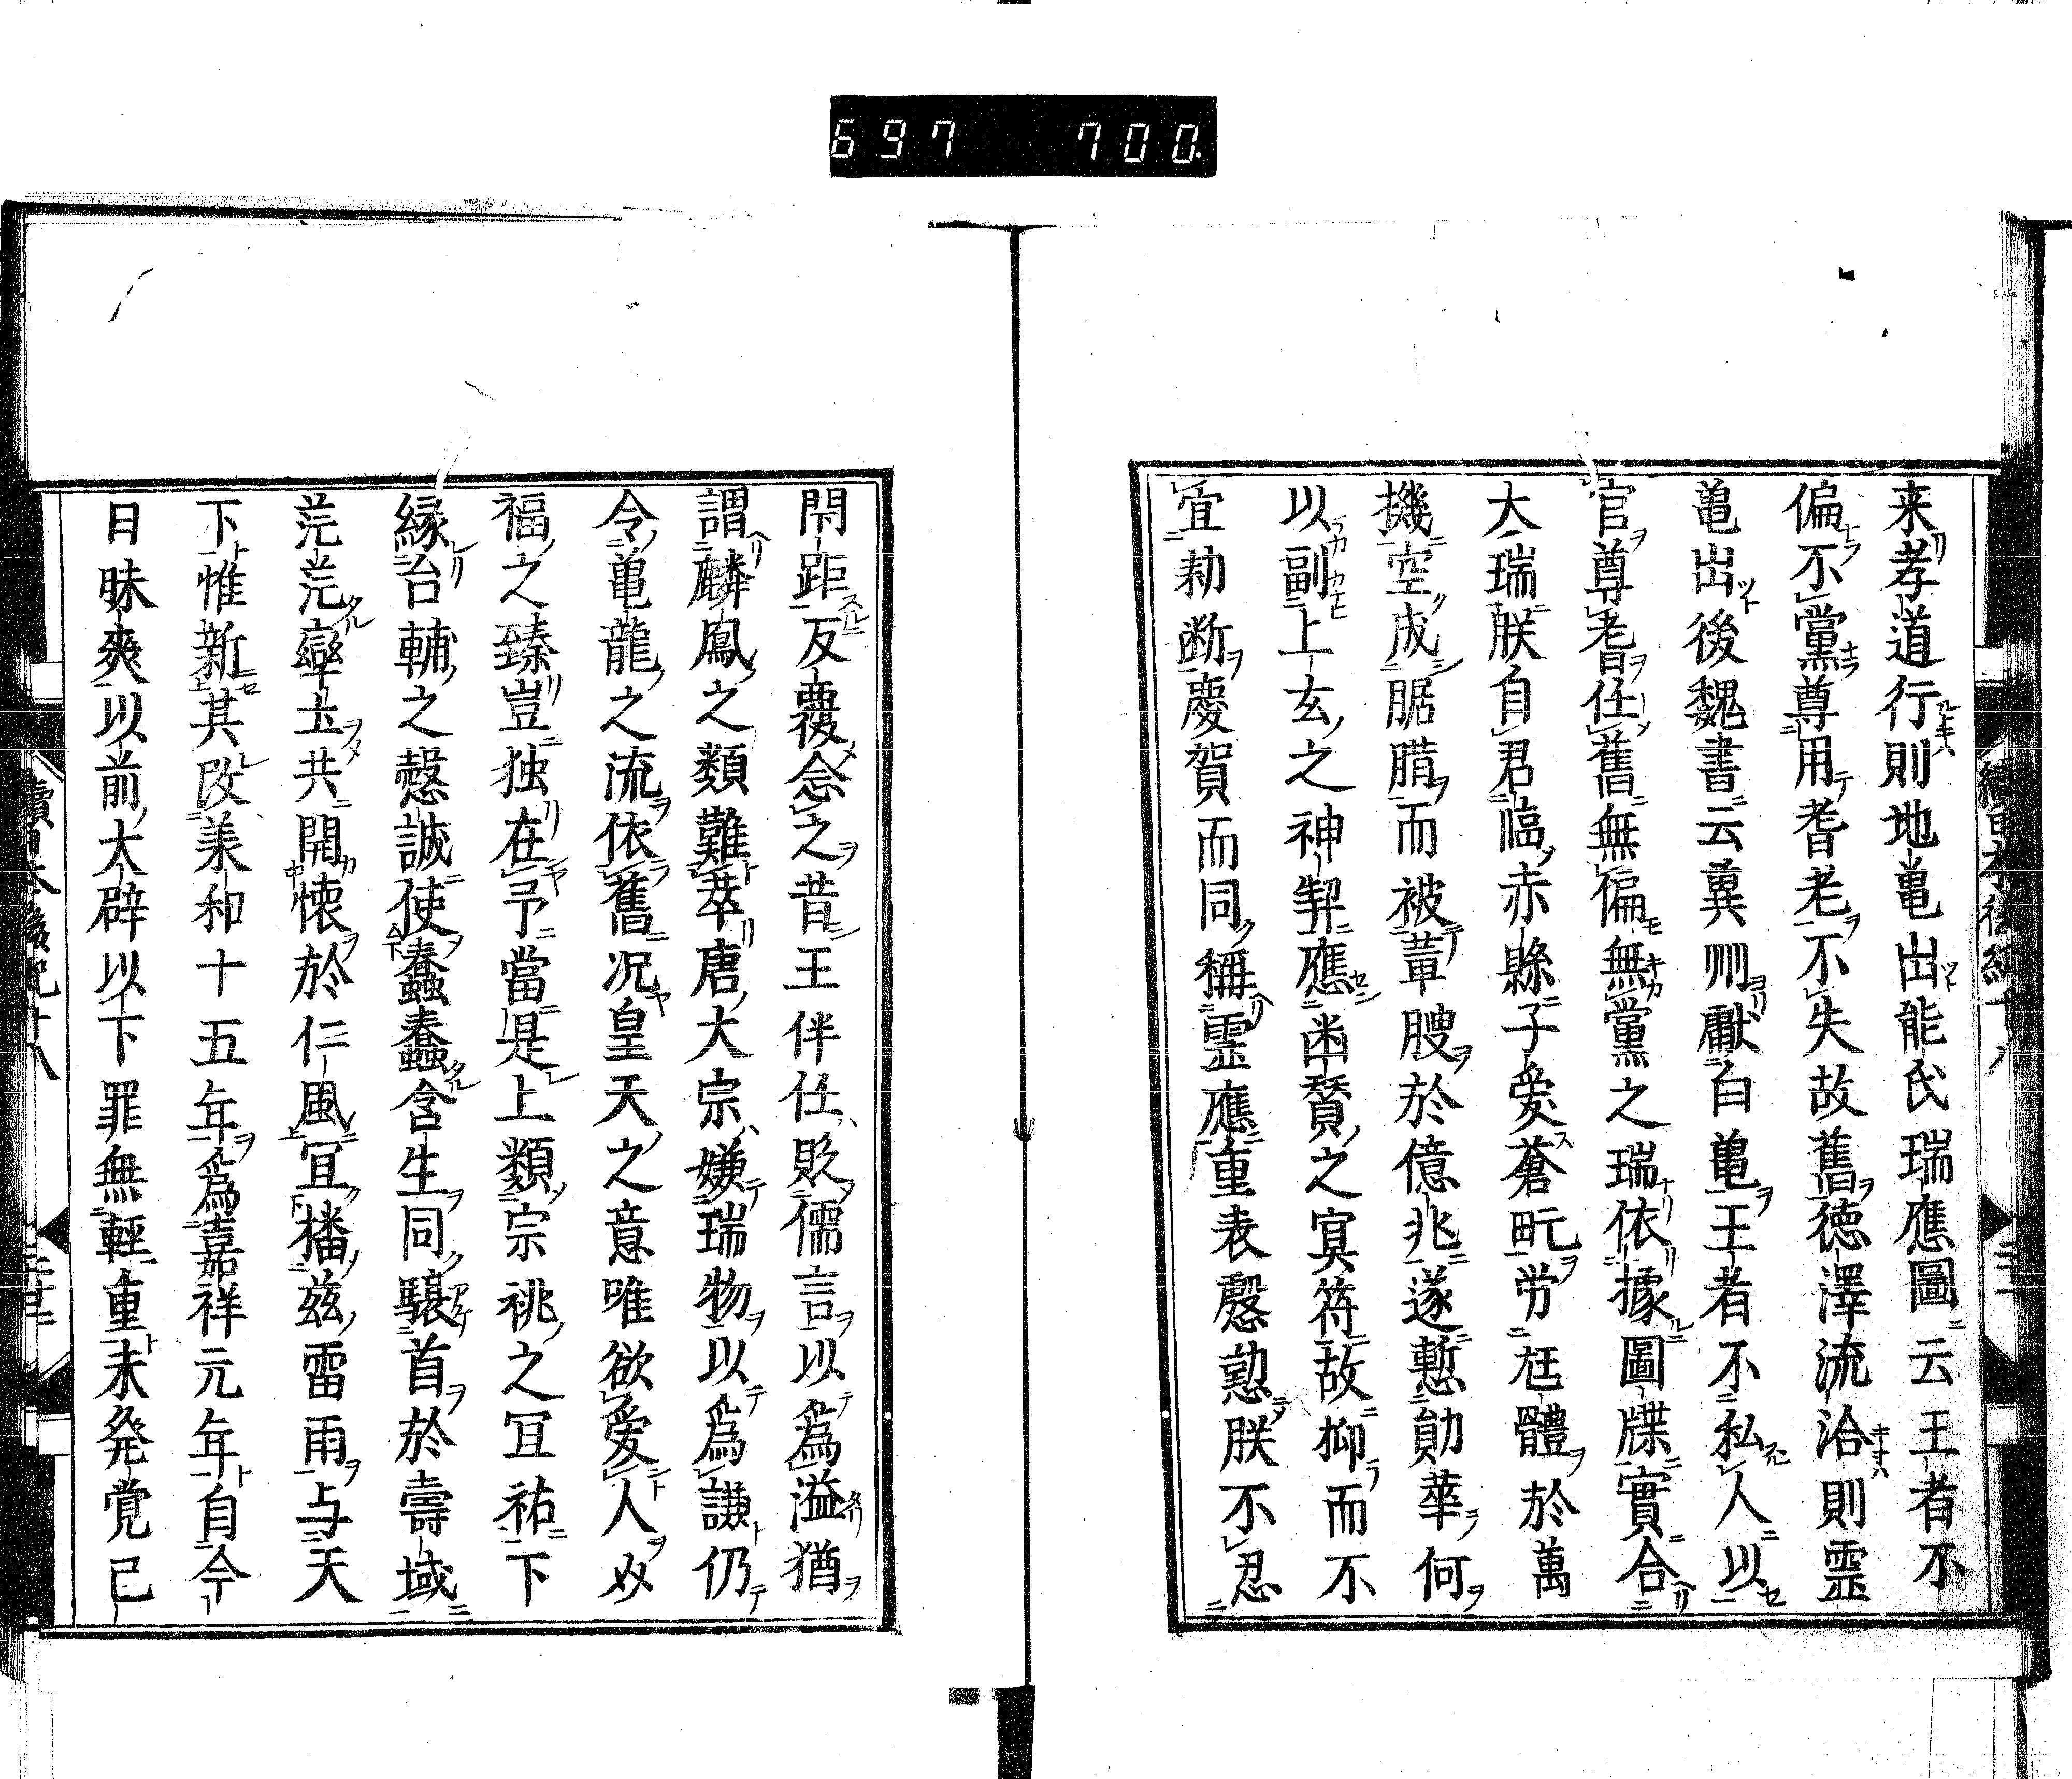 697 700.
来孝道行則地亀出能氏瑞應圖云王者不
偏不黨尊用耆老不失故舊徳澤流洽則霊
亀出後魏書云兾州獻白亀王者不私人以
官尊耆任舊無偏無黨之瑞依據圖牒實合
大瑞朕自君臨赤縣子愛蒼甿労尫體於萬
機空成腒腊而被葷膄於億兆遂慙勛華何
以副上玄之神契應幽賛之冥符故抑而不
宣勅断慶賀而同稱霊應重表慇懃朕不忍
閇距反覆念之昔王伴任敗儒言以為溢猶
謂麟鳳之類難萃唐大宗嫌瑞物以為謙仍
令亀龍之流依舊况皇天之意唯欲愛人奴
福之臻豈独在予當是上類宗祧之冝祐下
縁台輔之慤誠使蠢蠢含生同驤首於壽域
茫茫率土共開懐於仁風冝播茲雷雨与天
下惟新其改羕和十五年為嘉祥元年自今
日昧爽以前大辟以下罪無輕重未発覚已